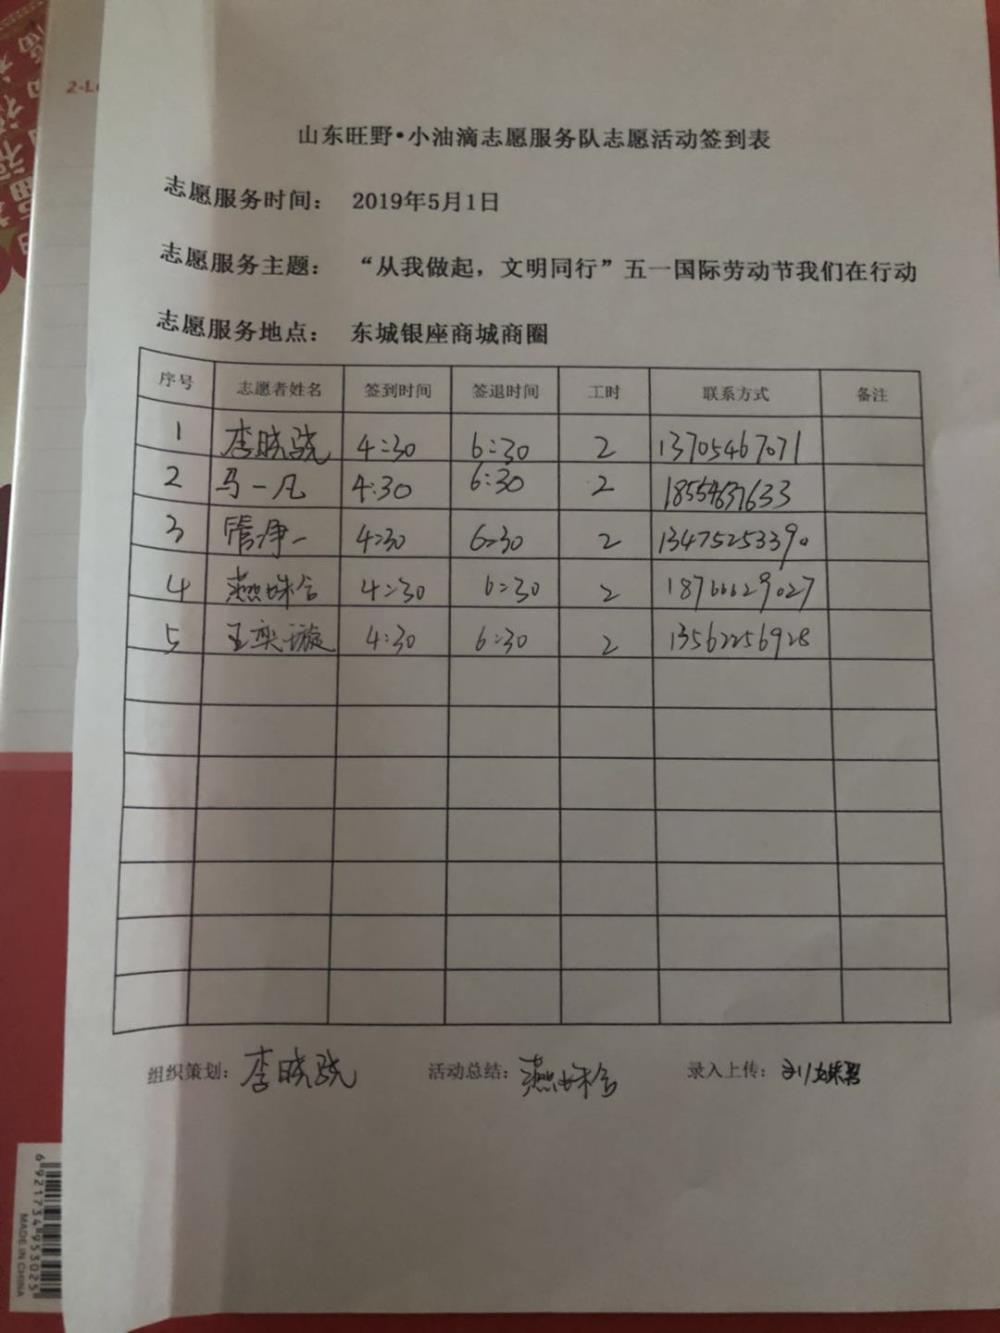 2-L
山东旺野•小油滴志愿服务队志愿活动签到表
志愿服务时间： 2019年5月1日
志愿服务主题： “从我做起，文明同行”五一国际劳动节我们在行动
志愿服务地点： 东城银座商城商圈
序号 志愿者姓名 签到时间 签退时间 工时 联系方式 备注
1 李晓骁 4:30 6:30 2 13705467071
2 马一凡 4:30 6:30 2 18554637633
3 管净一 4:30 6:30 2 13475253390
4 燕姝含 4:30 6:30 2 18766629027
5 王奕璇 4:30 6:30 2 13562256928
组织策划： 李晓骁 活动总结： 燕姝含 录入上传： 刘
6 921734 953025
MADE IN CHINA